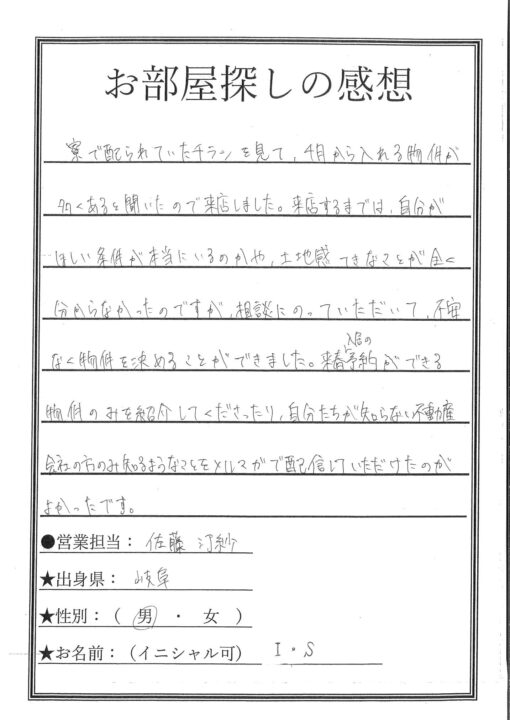 お部屋探しの感想
寮で配られていたチラシを見て、4月から入れる物件が
多くあると聞いたので来店しました。来店するまでは、自分が
ほしい条件が本当にいるのかや、土地感てきなことが全く
分からなかったのですが、相談にのっていただいて、不安
なく物件を決めることができました。来春入居の予約ができる
物件のみを紹介してくださったり、自分たちが知らない不動産
会社の方のみ知るようなことをメルマガで配信していただけたのが
よかったです。
●営業担当：佐藤 汀紗
★出身県：岐阜
★性別：（ 男 ・ 女 ）
★お名前：（イニシャル可） I・S